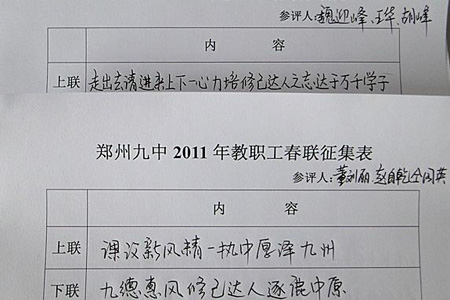 参评人:魏迎峰、王华、胡峰
内 容
上联 走出去请进来上下一心力培修己达人之志达于万千学子
郑州九中 2011 年教职工春联征集表
参评人:董刘丽、赵自乾
内 容
上联 课改新风精一执中厚泽九州
下联 九德惠风修己达人逐鹿中原